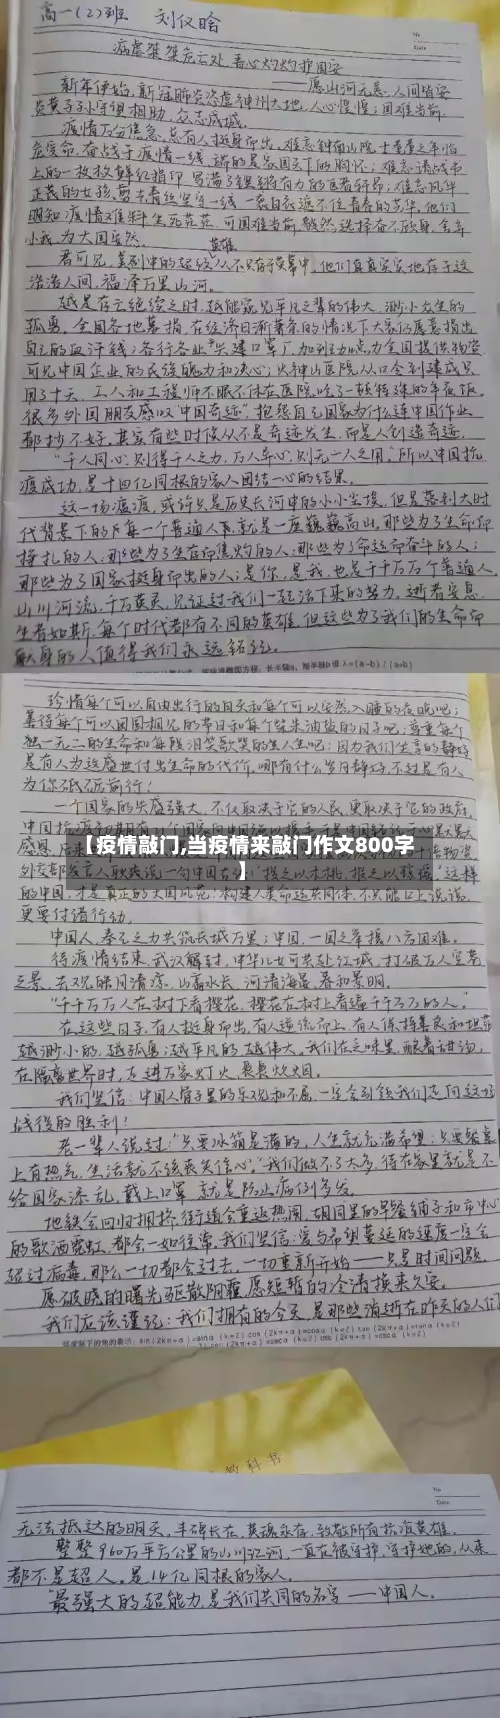 高一(2)班 刘仪晗
No
Date
病虐桀桀危亡处 吾心灼灼护国安
——愿山河无恙,人间皆安
新年伊始,新冠肺炎恣虐神州大地,人心惶惶;国难当前,
炎黄子孙守望相助,众志成城。
疫情万分危急,总有人挺身而出。难忘钟南山院士耄耋之年临
危受命,奋战于疫情一线,
上的一枚枚鲜红指印,
小我为大国安然。
英雄
浩浩人间,福泽万里山河。
越是存亡绝续之时,越能窥见平凡之辈的伟大,渺小众生的
孤勇。全国各地募捐,在经济日渐萧条的情况下大家仍愿意捐出
自己的血汗钱;各行各业
可见中国企业的民族魄力和决心;火神山医院从口令到建成只
用了十天,工人和工程师不眠不休在医院吃了一顿特殊的年夜饭,
很多外国朋友感叹“中国奇迹”,抱怨自己国家为什么连中国作业
都抄不好,其实有些时候从不是奇迹发生,而是人创造奇迹。
“千人同心,则得千人之力,万人异心,则无一人之用。”所以中国抗
疫成功,是十四亿同根的家人团结一心的结果。
这一场瘟疫,或许只是历史长河中的小小尘埃,但是落到大时
代背景下的每一个普通人下,就是一座巍巍高山,那些为了生命而
挣扎的人,那些为了生存而焦灼的人,那些为了命运而奋斗的人;
那些为了国家挺身而出的人;是你,是我,也是千千万万个普通人。
山川河流,千万英灵,见证过我们一起活下来的努力。逝者安息,
生者如斯,每个时代都有不同的英雄,但这些为了我们的生命而
献身的人值得我们永远铭记。
珍惜每个可以自由出行的白天和每个可以安然入睡的夜晚吧;
善待每个可以团圆相见的节日和每个柴米油盐的日子吧;尊重每个
独一无二的生命和每段泪笑歌哭的人生吧;因为我们坐享的静好
是有人为这盛世付出生命的代价,哪有什么岁月静好,不过是有人
为你砥砺前行!
一个国家的兴盛强大,不仅取决于它的人民,更取决于它的政府,
【疫情敲门,当疫情来敲门作文800字
】
的中国,才是真正的大国风范!构建人类命运共同体,不只能口上说说,
更要付诸行动。
中国人,秦己之力共筑长城万里;中国,一国之举援八方困难。
待疫情结束,武汉解封,中华儿女可共赴江城,打破万人空巷
之景,去观皓月清凉,山高水长,河清海晏,春和景明。
“千千万万人在树下看樱花,樱花在树上看遍千千万万的人。”
在这些日子,有人挺身而出,有人逆流而上,有人保持善良和坦荡
越渺小的,越孤勇;越平凡的,越伟大。我们在乏味里,酿着甜汤;
在隔离世界时,走进万家灯火,袅袅炊烟。
我们坚信:中国人骨子里的乐观和不屈,一定会引领我们走向这场
战役的胜利!
老一辈人说过:“只要冰箱是满的,人生就充满希望;只要餐桌
上有热气,生活就不该丧失信心。”我们做不了太多,待在家里就是不
给国家添乱,戴上口罩,就是防止病例多发。
地铁会回归拥挤,街道会重返热闹,胡同里的早餐铺子和市中心
的歌酒霓虹,都会一如往常,我们坚信:爱与希望蔓延的速度一定会
超过病毒,那么一切都会过去,一切重新开始——只是时间问题。
愿破晓的曙光驱散阴霾,愿短暂的冷清换来久安。
我们应该谨记:我们拥有的今天,是那些消逝在昨天的人们
教科书
No
Date
无法抵达的明天,丰碑长在,英魂永存,致敬所有抗疫英雄。
整整960万平方公里的山川江河,一直在被守护,守护她的,从来
都不是超人,是14亿同根的家人。
最强大的超能力,是我们共同的名字——中国人。